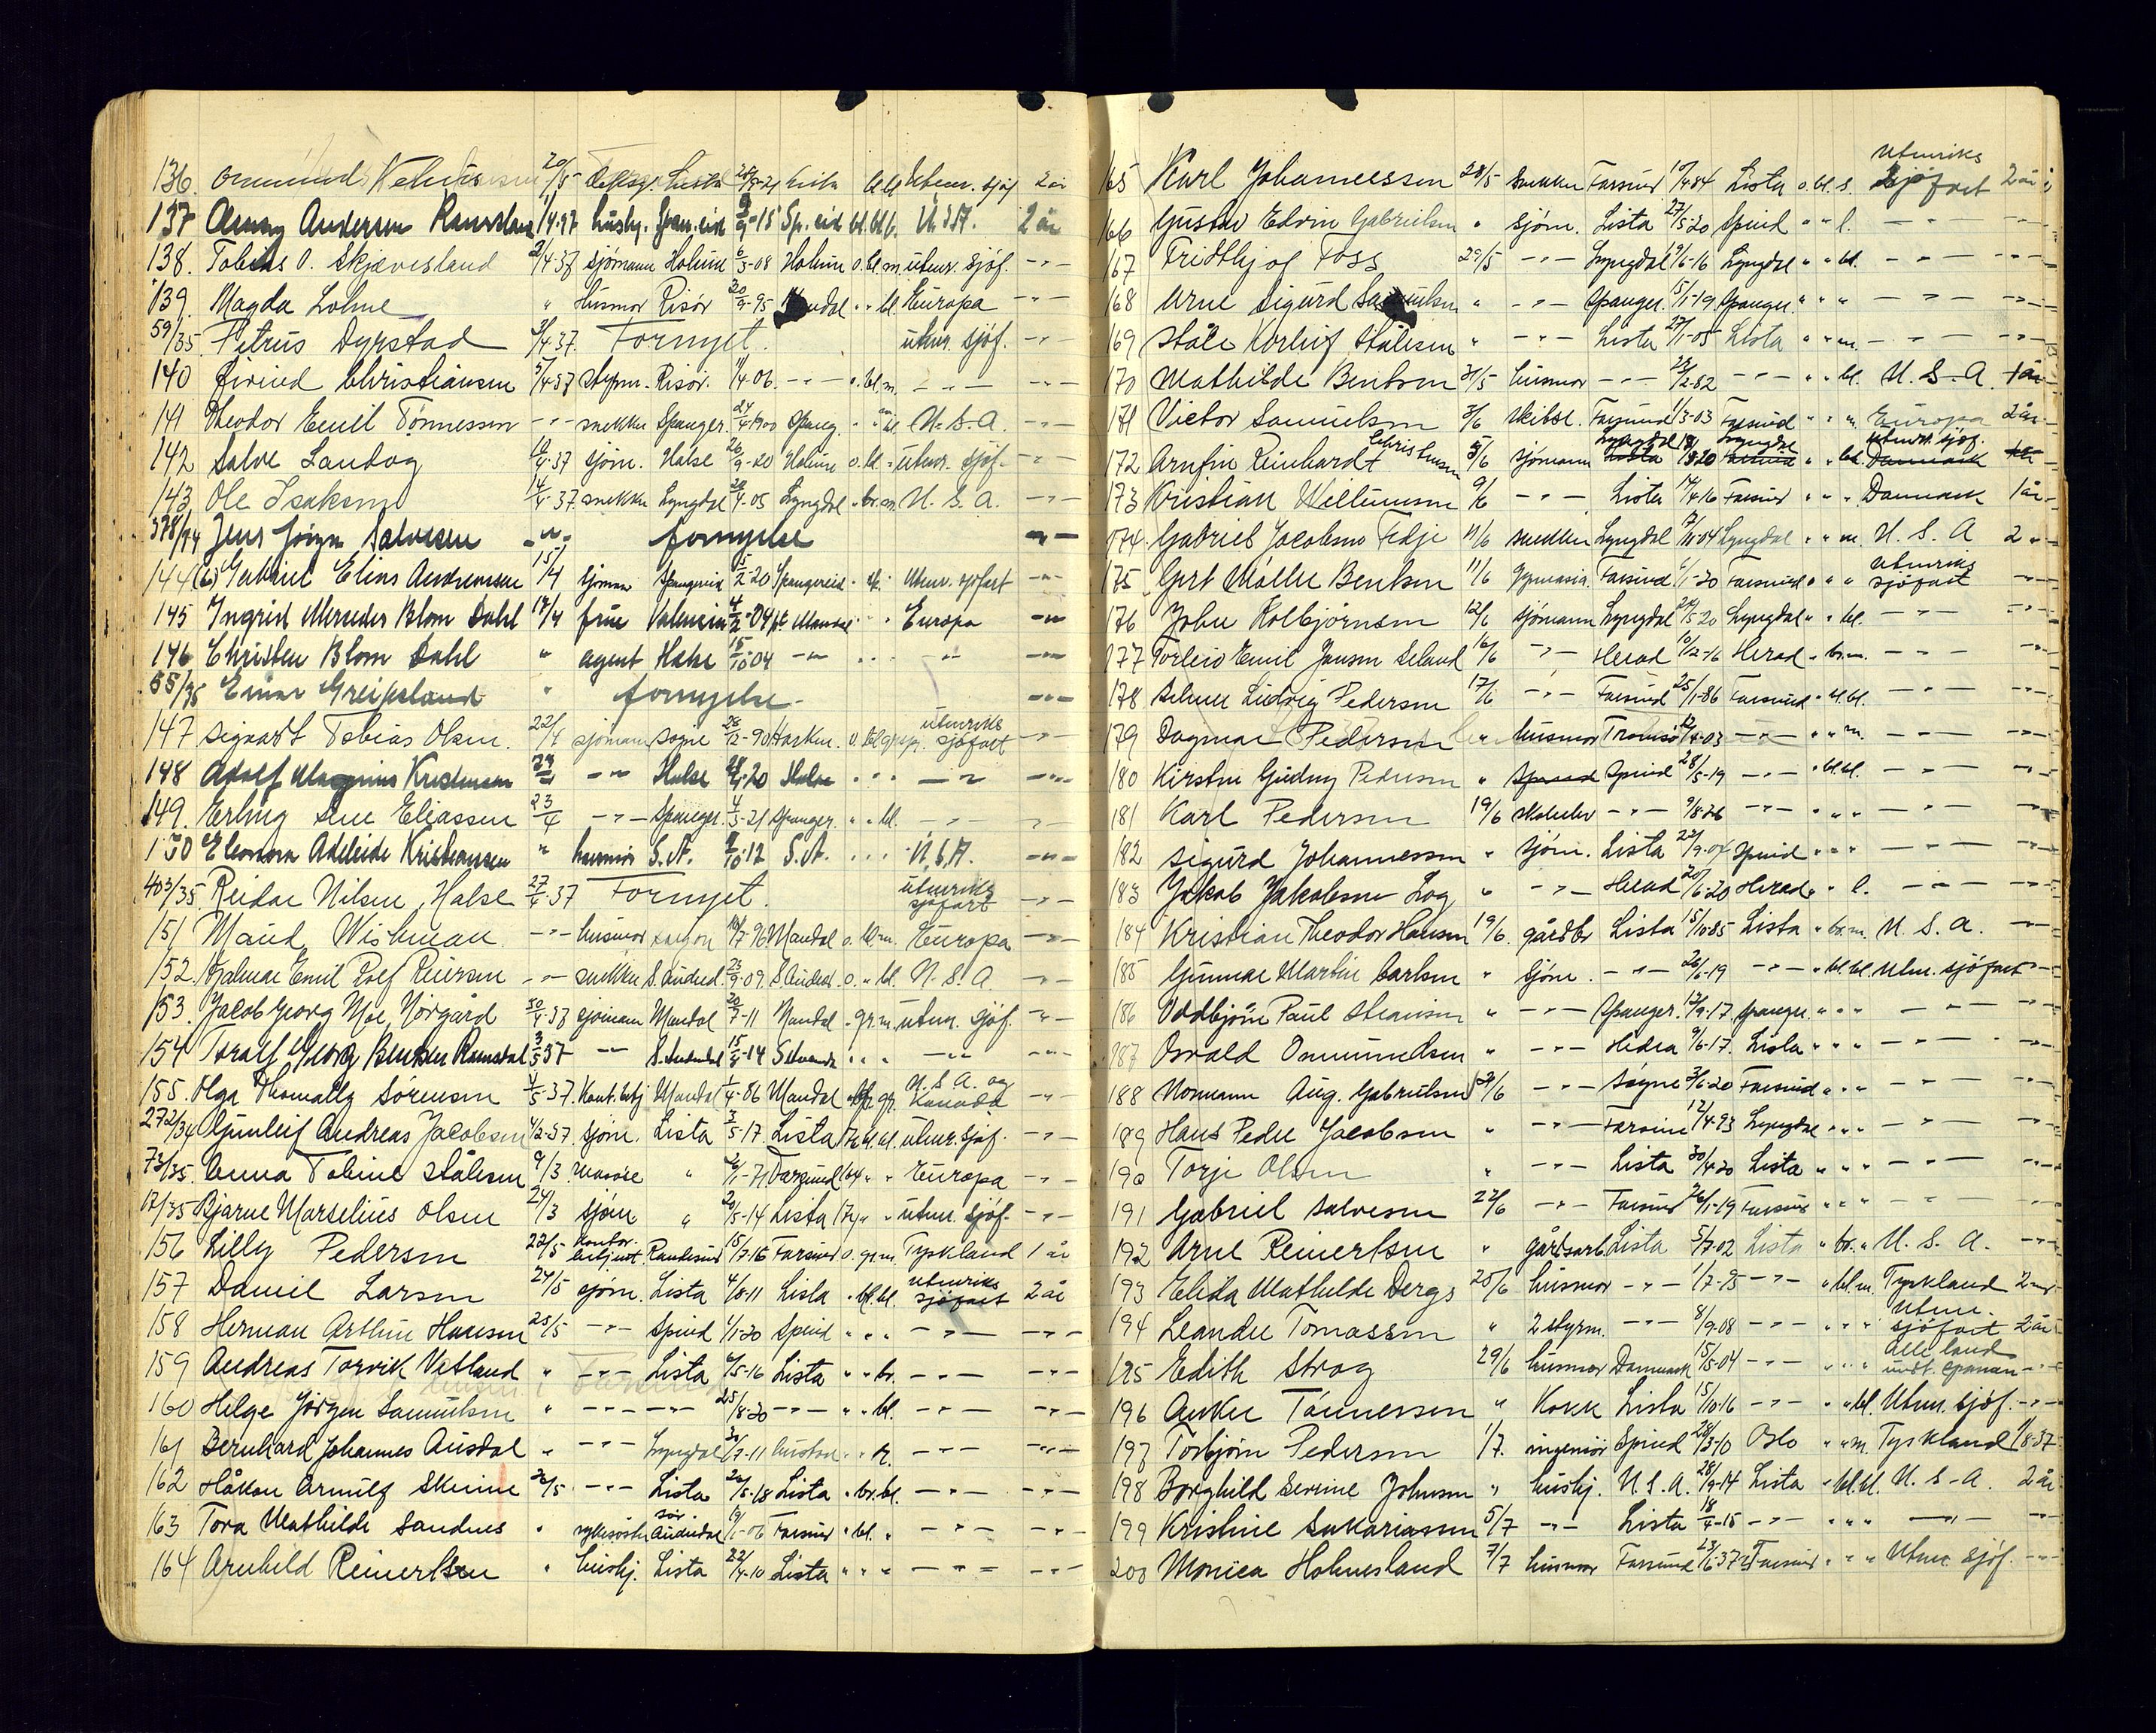 136. Lista Lista 2 år
137 Anny Andersen 1/4-37 husbj. Span.eid -15 Sp. eid bl. bl. U.S.A. 2 år
138. Tobias O. Skjævesland 2/4-37 sjømann Holum 6/3-08 Holum o. bl. m. utenr. sjøf. -"-
139. Magda Lohne " Husmor Risör 30/9-95 " " bl. Europa -"-
59/35. Petrus Dyrstad 3/4 37. Fornyet. utenr. sjöf. -"-
140 Øivind Christiansen 5/4-37 styrm. Risör. 11/4-06. -"- " bl. m. -"- -"-
141 Theodor Emil Tønnessen -"- snekker Spanger. 24/4-1900 Spang. " " bl. U.S.A. -"-
142 Salve Landog 10/4-37 sjøm. Halse 26/9-20 Holum o. bl. " utenr. sjöf. -"-
143 Ole Isaksen 14/4-37 snekker Lyngdal 28/4-05 Lyngdal " br. m. U.S.A. -"-
378/34 Jens Jörgen Salvesen -"- fornyelse -"-
144 Gabriel Elias Andreassen 15/4 sjömann Spangereid 15/2-20 Spangereid utenr. sjøfart -"-
145 Ingrid Mercedes Blom Dahl 17/4 frue Valencia 4/2-04 pt. Mandal " " Europa -"-
146 Christen Blom Dahl " agent Halse 15/10-04 -"- " " " -"- -"-
55/35 Einar Greipsland " fornyelse -"-
147 Sigvart Tobias Olsen. 22/4 sjömann Søgne 28/12-90 o. utenriks sjøfart -"-
148 Adolf Magnus Kristensen -"- Halse 28/4-20 Halse " " " -"- -"-
149. Erling Sem Eliassen 23/4 -"- Spanger. 4/3-21 Spanger. " " bl. -"- "
150 Eleonora Adeleide Kristiansen " husmor S.A. 9/10-12 S.A. " " " U.S.A. -"-
403/35. Reidar Nilsen, Halse 27/4-37 Fornyet. utenriks sjøfart -"-
151 Maud Wishman -"- husmor 7-96 Mandal o. bl. m. Europa -"-
152. Hjalmar Emil Rolf Reiersen -"- snekker S. Audned. 23/9-09. S. Audned. o. " bl. U.S.A. -"-
153. Jacob Georg Moe Nörgård 30/4-37 sjömann Mandal 20/7-11 Mandal " gr. m. utenr. sjöf. -"-
154 Toralf Georg Bentsen Ramsdal 3/5 37 -"- S. Audnedal 15/4-14 " " " -"- -"-
155. Olga Thomally Sörensen 4/5-37. Kont. btj Mandal 1/4-86 Mandal gr. U.S.A. og Kanada -"-
272/34 Gunleif Andreas Jacobsen 4/2-37. sjøm. Lista 3/5-17. Lista bl. bl. utenr. sjöf. -"-
73/35. Anna Tobine Stålesen 9/3. " Farsund " " Europa -"-
12/35 Bjarne Marselius Olsen 24/3 sjøm " 20/5-14 Lista " " utenr. sjöf. -"-
156 Lilly Pedersen 22/5 kontor. betjent Randesund 15/7-16 Farsund o. gr. m. Tyskland 1 år
157 Daniel Larsen 24/5 sjøm. Lista 4/8-11 Lista " bl. bl. utenriks sjøfart 2 år
158 Herman Arthur Hansen 25/5 -"- Spind 4/1-20 Spind " " " -"- -"-
159 Andreas Torvik Vetland " -"- Lista 6/5-16 Lista " " br. -"- -"-
160 Helge Jörgen Samuelsen " -"- -"- 25/8-20 -"- " " bl. -"- -"-
161 Bernhard Johannes Ausdal " -"- Lyngdal 30/7-11 " " -"- -"-
162 Håkon Arnulf Skeime 26/5 -"- Lista 26/5-18 Lista " br. bl. -"- -"-
163 Tora Mathilde Sandnes " sykesöster sör. Audnedal 19/1-06 Farsund " bl. " -"- -"-
164 Arnhild Reinertsen " hushj. Lista 22/4-10 Lista " " " -"- -"-
165 Karl Johannessen 28/5 Snekker Farsund 10/4 84 Lista o. bl. s. Utenriks sjøfart 2 år
166 Gustav Edvin Gabrielsen " sjøm. Lista 27/5-20 Spind " " l. -"- -"-
167 Fridthjof Foss 29/5 -"- Lyngdal 19/6-16 Lyngdal " " bl. -"- -"-
168 Arne Sigurd " -"- Spanger. 15/1-19. Spanger. " " " -"- -"-
169 Ståle Korleif Stålesen " -"- Lista 27/1-05 Lista " " m. -"- -"-
170 Mathilde Bentsen 31/5 husmor -"- 23/2-82 -"- " " bl. U.S.A. 1 år
171 Victor Samuelsen 3/6 skibse. Farsund 1/3-03 Farsund " " " Europa 2 år
172 Arnfin Reinhardt Christensen 5/6 sjömann Lyngdal Lista 18/8 20 Lyngdal " " bl. utenr. sjøf. Danmark
173 Kristian Willumsen 9/6 -"- Lista 14/4-16 Farsund " " " Danmark 1 år
174. Gabriel Jacobsen Fedje 11/6 snekker Lyngdal 7/11-04 Lyngdal " " m. U.S.A 2 "
175 Gert Möller Bentsen 11/6 Gymnasia. Farsund 6/1-20 Farsund " " " utenriks sjøfart -"-
176 John Kolbjörnsen 12/6 sjömann Lyngdal 24/5 20 Lyngdal " " bl. -"- -"-
177 Torleiv Emil Jansen Seland 16/6 -"- Herad 10/2-16 Herad " br. m. -"- -"-
178 Selmer Ludvig Pedersen 17/6 -"- Farsund 25/1-86 Farsund " bl. bl. -"- -"-
179 Dagmar Pedersen " husmor Tromsö 12/4-03 -"- " " m. -"- -"-
180 Kirsten Gudny Pedersen " Spind 28/5-19 -"- " bl. bl. -"- -"-
181 Karl Pedersen 19/6 skoleelev -"- 9/8-26 -"- " " " -"- -"-
182 Sigurd Johannessen " sjøm. Lista 22/9-07 Spind " " " -"- -"-
183 Jakob Jakobsen Log " -"- Herad 20/6-20 Herad " " l. -"- -"-
184 Kristian Theodor Hansen 19/6. gårdbr Lista 15/10 85 Lista " br. m. U.S.A. -"-
185 Gunnar Martin Carlsen " sjøm. -"- 26/6-19 -"- " bl. bl. Utenr. sjøfart -"-
186 Oddbjørn Paul " -"- Spanger. 12/9-17. Spanger. " " " -"- -"-
187 Osvald Osmundsen " -"- Hidra 9/6-17. Lista " " " -"- -"-
188 Normann Aug. Gabrielsen 21/6 -"- Søgne 3/6-20 Farsund " " " -"- -"-
189 Hans Peder Jacobsen " -"- Farsund 12/4-93 Lyngdal " " " -"- -"-
190 Torje Olsen " -"- Lista 30/4-20 Lista " " " -"- -"-
191 Gabriel Salvesen 22/6 -"- Farsund 26/1-19 Farsund " " " -"- -"-
192 Arne Reinertsen " gårdsarb. Lista 5/7-02 Lista " br. " U.S.A. -"-
193 Elida Mathilde Dergs 25/6 husmor -"- 1/7-95 -"- " bl. m. Tyskland 2
194 Leander Tomassen " 2 styrm. -"- 8/9-08 -"- " " " utenr. sjöfart 2 år
195 Edith Strag 29/6 husmor Danmark 15/5-04 -"- " " " Alle land unt. spanan -"-
196 Anker Tönnessen " Kokk Lista 15/10-16 -"- " " bl. Utenr. sjöf. -"-
197 Torbjørn Pedersen 1/7. ingeniör Spind 28/3-10 Oslo " " m. Tyskland 1/8-37
198 Borghild Serine Johnsen " hushj. U.S.A. 28/9-14 Lista " bl. bl. U.S.A. 2 år
199 Kristine Sakariassen 5/7 -"- Lista 18/4-15 -"- " " " -"- -"-
200 Monica Holmesland 7/7 husmor Farsund Farsund " " " Utenr. sjöf. -"-